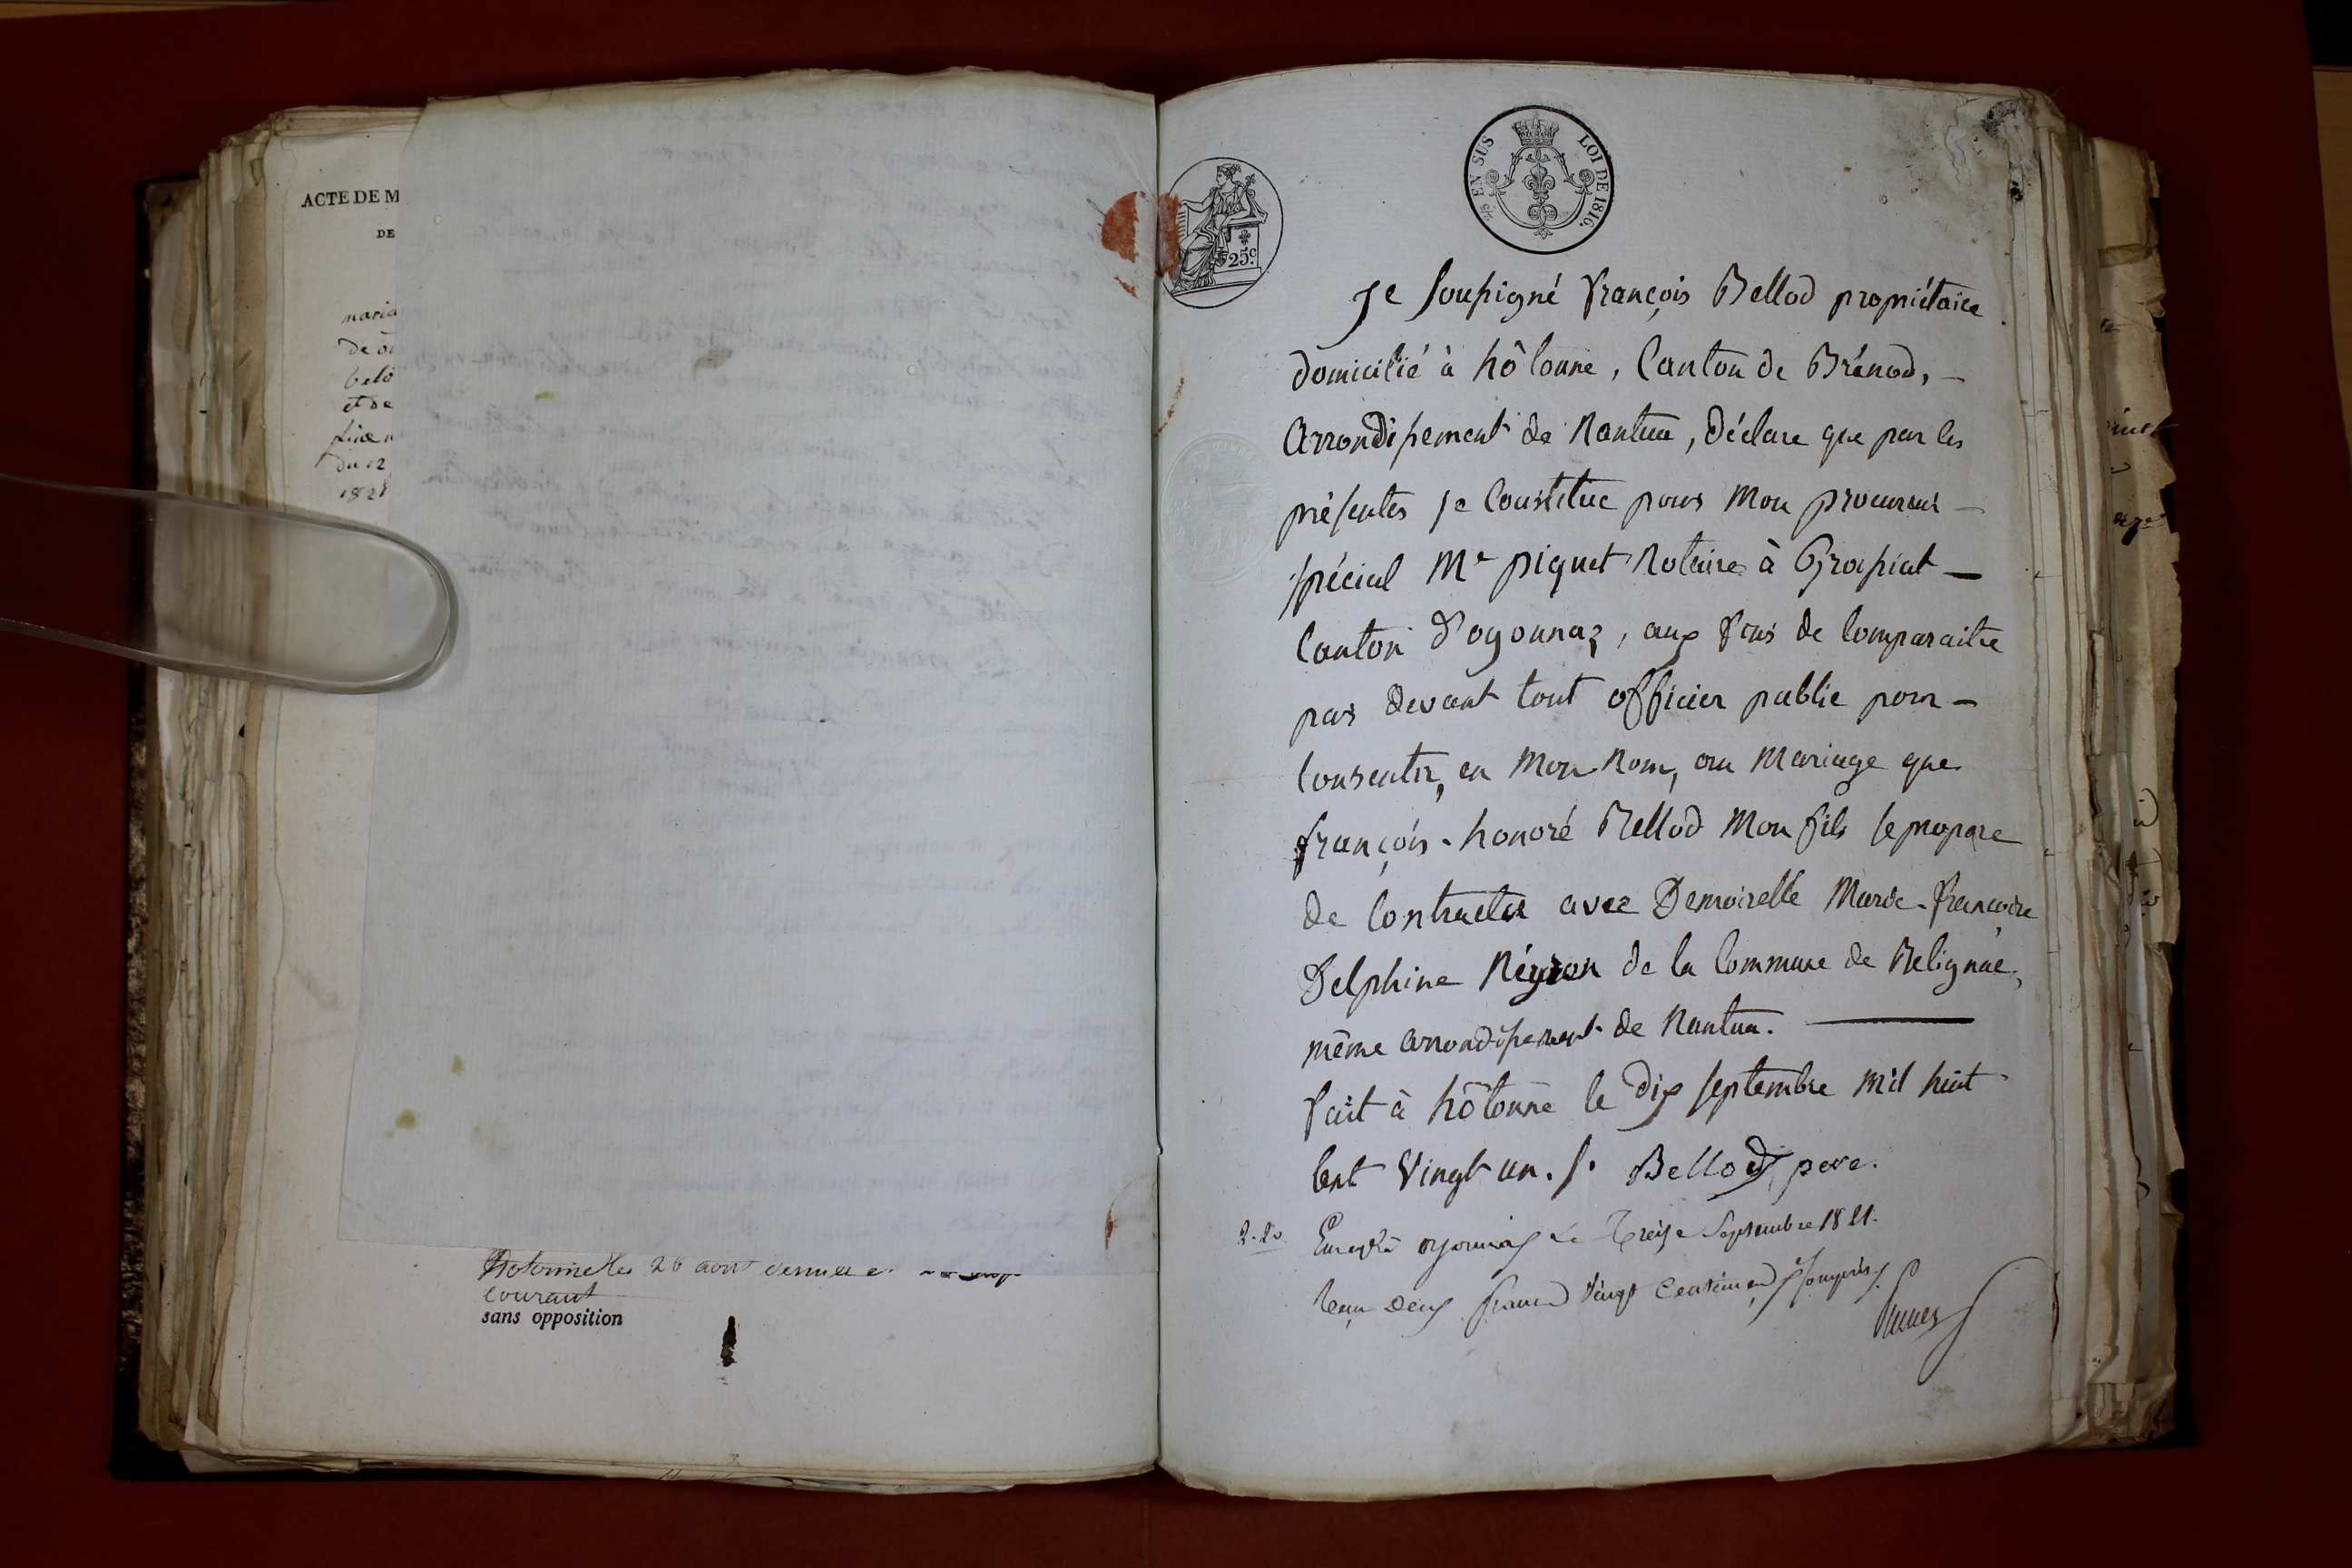 ACTE DE M
DE
maria
de
et de
du 12
1821
26 aout dernier
courant
sans opposition
25 c.
EN SUS
LOI DE 1816.
Je soussigné françois Bellod propriétaire
domicilié à hôtonne, Canton de Brénod, -
arrondissement de Nantua, déclare que par les
présentes je Constitue pour mon procureur -
spécial Me piquet Notaire à Groissiat -
Canton d'oyonnaz, aux fins de Comparaitre
par devant tout officier public pour -
Consentir, en mon Nom, au mariage que
françois-honoré Bellod mon fils se propose
de Contracter avec Demoiselle Marie-françoise
Delphine Négron de la Commune de Belignac,
même arrondissement de Nantua. -
fait à hôtonne le dix septembre mil huit
Cent vingt un. /. Bellod pere.
2.20. Enregtré oyonnax le Treize Septembre 1821.
Reçu deux francs vingt Centimes